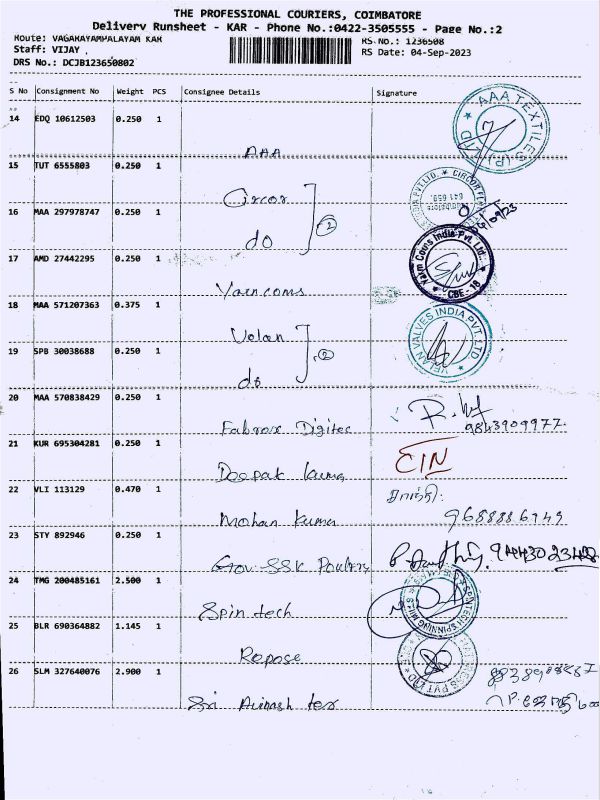 THE PROFESSIONAL COURIERS, COIMBATORE
Delivery Runsheet - KAR - Phone No.:0422-3505555 - Page No.:2
Route: VAGARAYAMPALAYAM KAR
RS No.: 1236508
Staff: VIJAY .
RS Date: 04-Sep-2023
DRS No.: DCJB123650802
S No Consignment No Weight PCS Consignee Details Signature
14 EDQ 10612503 0.250 1
AAA
AAA TEXTILES (P) LTD
15 TUT 6555803 0.250 1
Circor
641 659.
16 MAA 297978747 0.250 1
do
2
17 AMD 27442295 0.250 1
Vain coms
Vaiym Coms India Pvt. Ltd.
CBE - 18
18 MAA 571207363 0.375 1
Velan
VELAN VALVES INDIA PVT LTD
19 SPB 30038688 0.250 1
do
2
20 MAA 570838429 0.250 1
Fabrox Digitec
9843909977
21 KUR 695304281 0.250 1
Deepak Kuma
22 VLI 113129 0.470 1
Mohan Kumar
9688886949
23 STY 892946 0.250 1
Gov SSK Poultry
24 TMG 200485161 2.500 1
Spin tech
SPINTECH SPINNING MILLS
25 BLR 690364882 1.145 1
Repose
PVT LTD
26 SLM 327640076 2.900 1
Sri Avinash tex